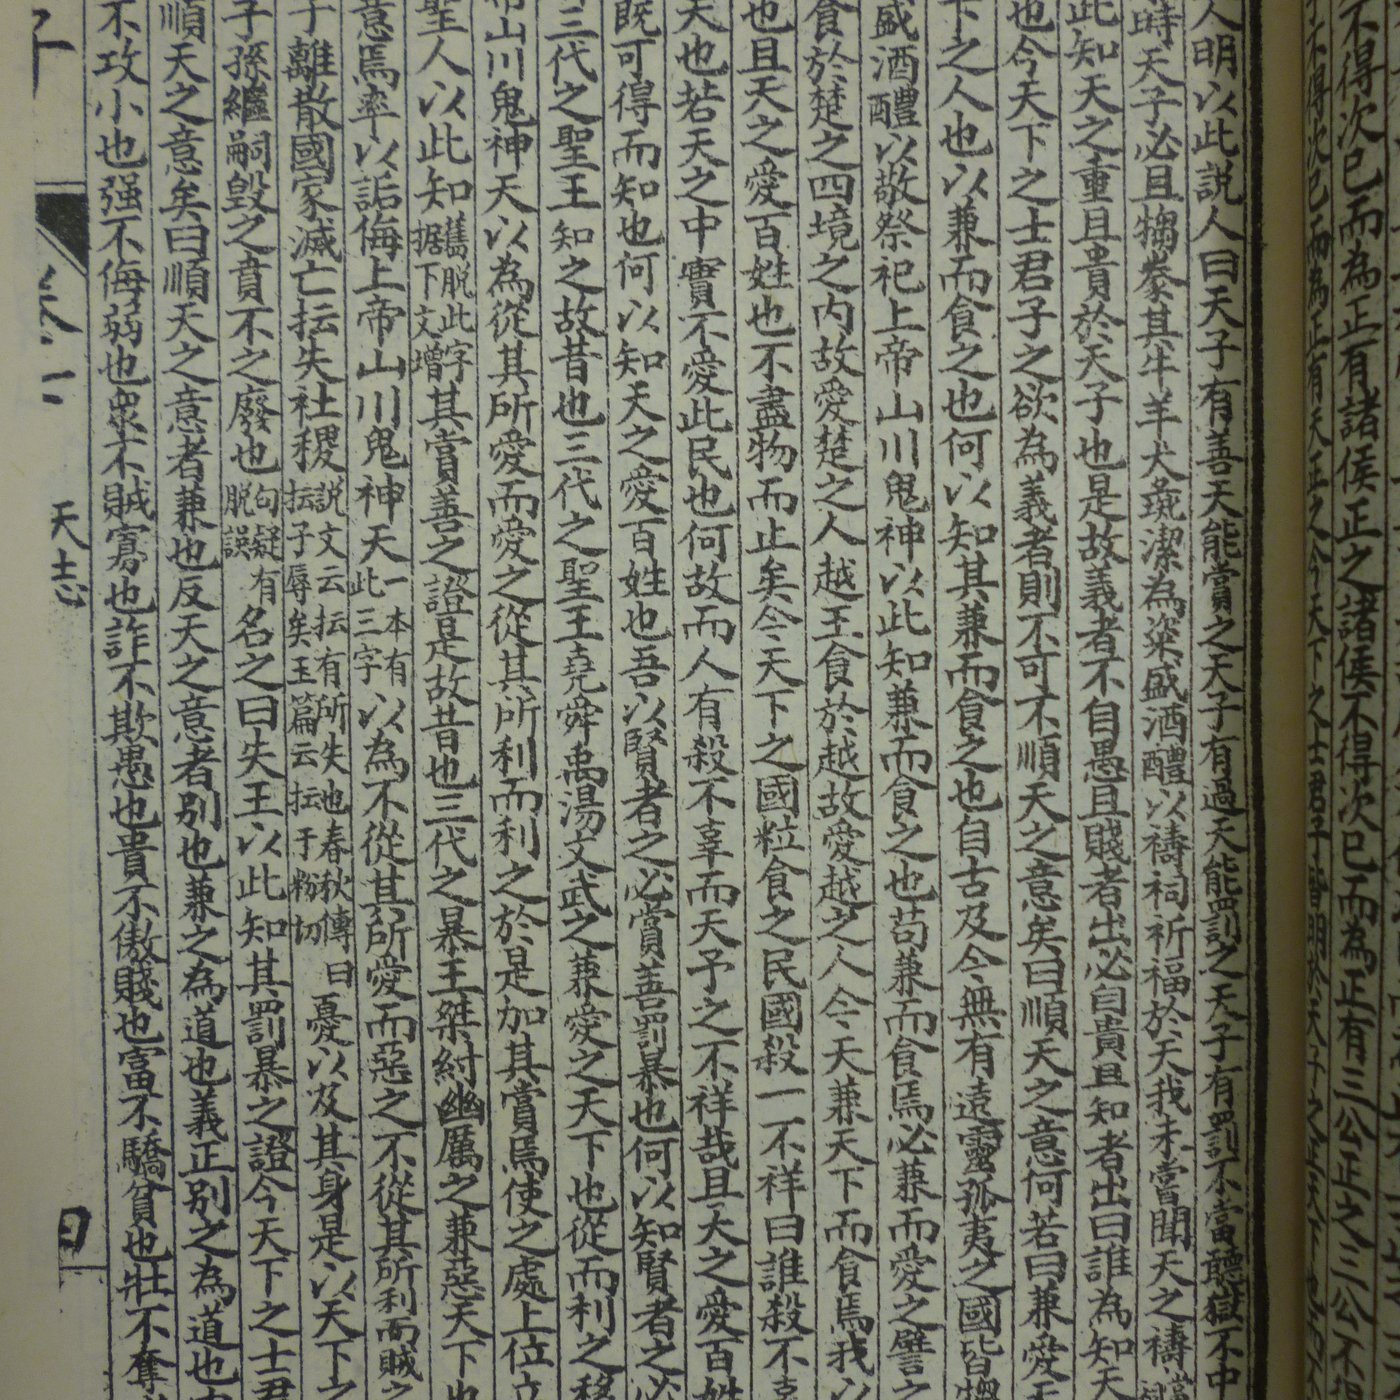 不得次已而為正有諸侯正之諸侯不得次已而為正有三公正之三公不
人明以此説人曰天子有善天能賞之天子有過天能罰之天子有罰不當聽獄不中
時天子必且犓豢其牛羊犬彘潔為粢盛酒醴以禱祠祈福於天我未嘗聞天之禱
此知天之重且貴於天子也是故義者不自愚且賤者出必自貴且知者出曰誰為知天
也今天下之士君子之欲為義者則不可不順天之意矣曰順天之意何若曰兼愛天
下之人也以兼而食之也何以知其兼而食之也自古及今無有遠靈孤夷之國皆犓
盛酒醴以敬祭祀上帝山川鬼神以此知兼而食之也苟兼而食焉必兼而愛之譬之
食於楚之四境之內故愛楚之人越王食於越故愛越之人今天兼天下而食焉我以
也且天之愛百姓也不盡物而止矣今天下之國粒食之民國殺一不祥曰誰殺不辜
天也若天之中實不愛此民也何故而人有殺不辜而天予之不祥哉且天之愛百姓
既可得而知也何以知天之愛百姓也吾以賢者之必賞善罰暴也何以知賢者之必
三代之聖王知之故昔也三代之聖王堯舜禹湯文武之兼愛之天下也從而利之移
帝山川鬼神天以為從其所愛而愛之從其所利而利之於是加其賞焉使之處上位立
聖人以此知舊脱此字据下文增其賞善之證是故昔也三代之暴王桀紂幽厲之兼惡天下也
意焉率以詬侮上帝山川鬼神天一本有此三字以為不從其所愛而惡之不從其所利而賊之
子離散國家滅亡抎失社稷説文云抎有所失也春秋傳曰抎子辱矣玉篇云抎于粉切憂以及其身是以天下之
子孫繼嗣毀之賁不之廢也句疑有脱誤名之曰失王以此知其罰暴之證今天下之士君
順天之意矣曰順天之意者兼也反天之意者别也兼之為道也義正别之為道也
不攻小也强不侮弱也衆不賊寡也詐不欺愚也貴不傲賤也富不驕貧也壯不奪
子
卷一
天志